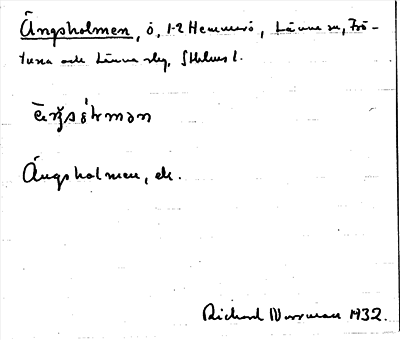 Ängsholmen, ö, 1-2 Hemmersö, Länna sn, Frö-
tuna och Länna slg, Sthlms l.
Ängsholmen, ek.
Richard Norrman 1932.